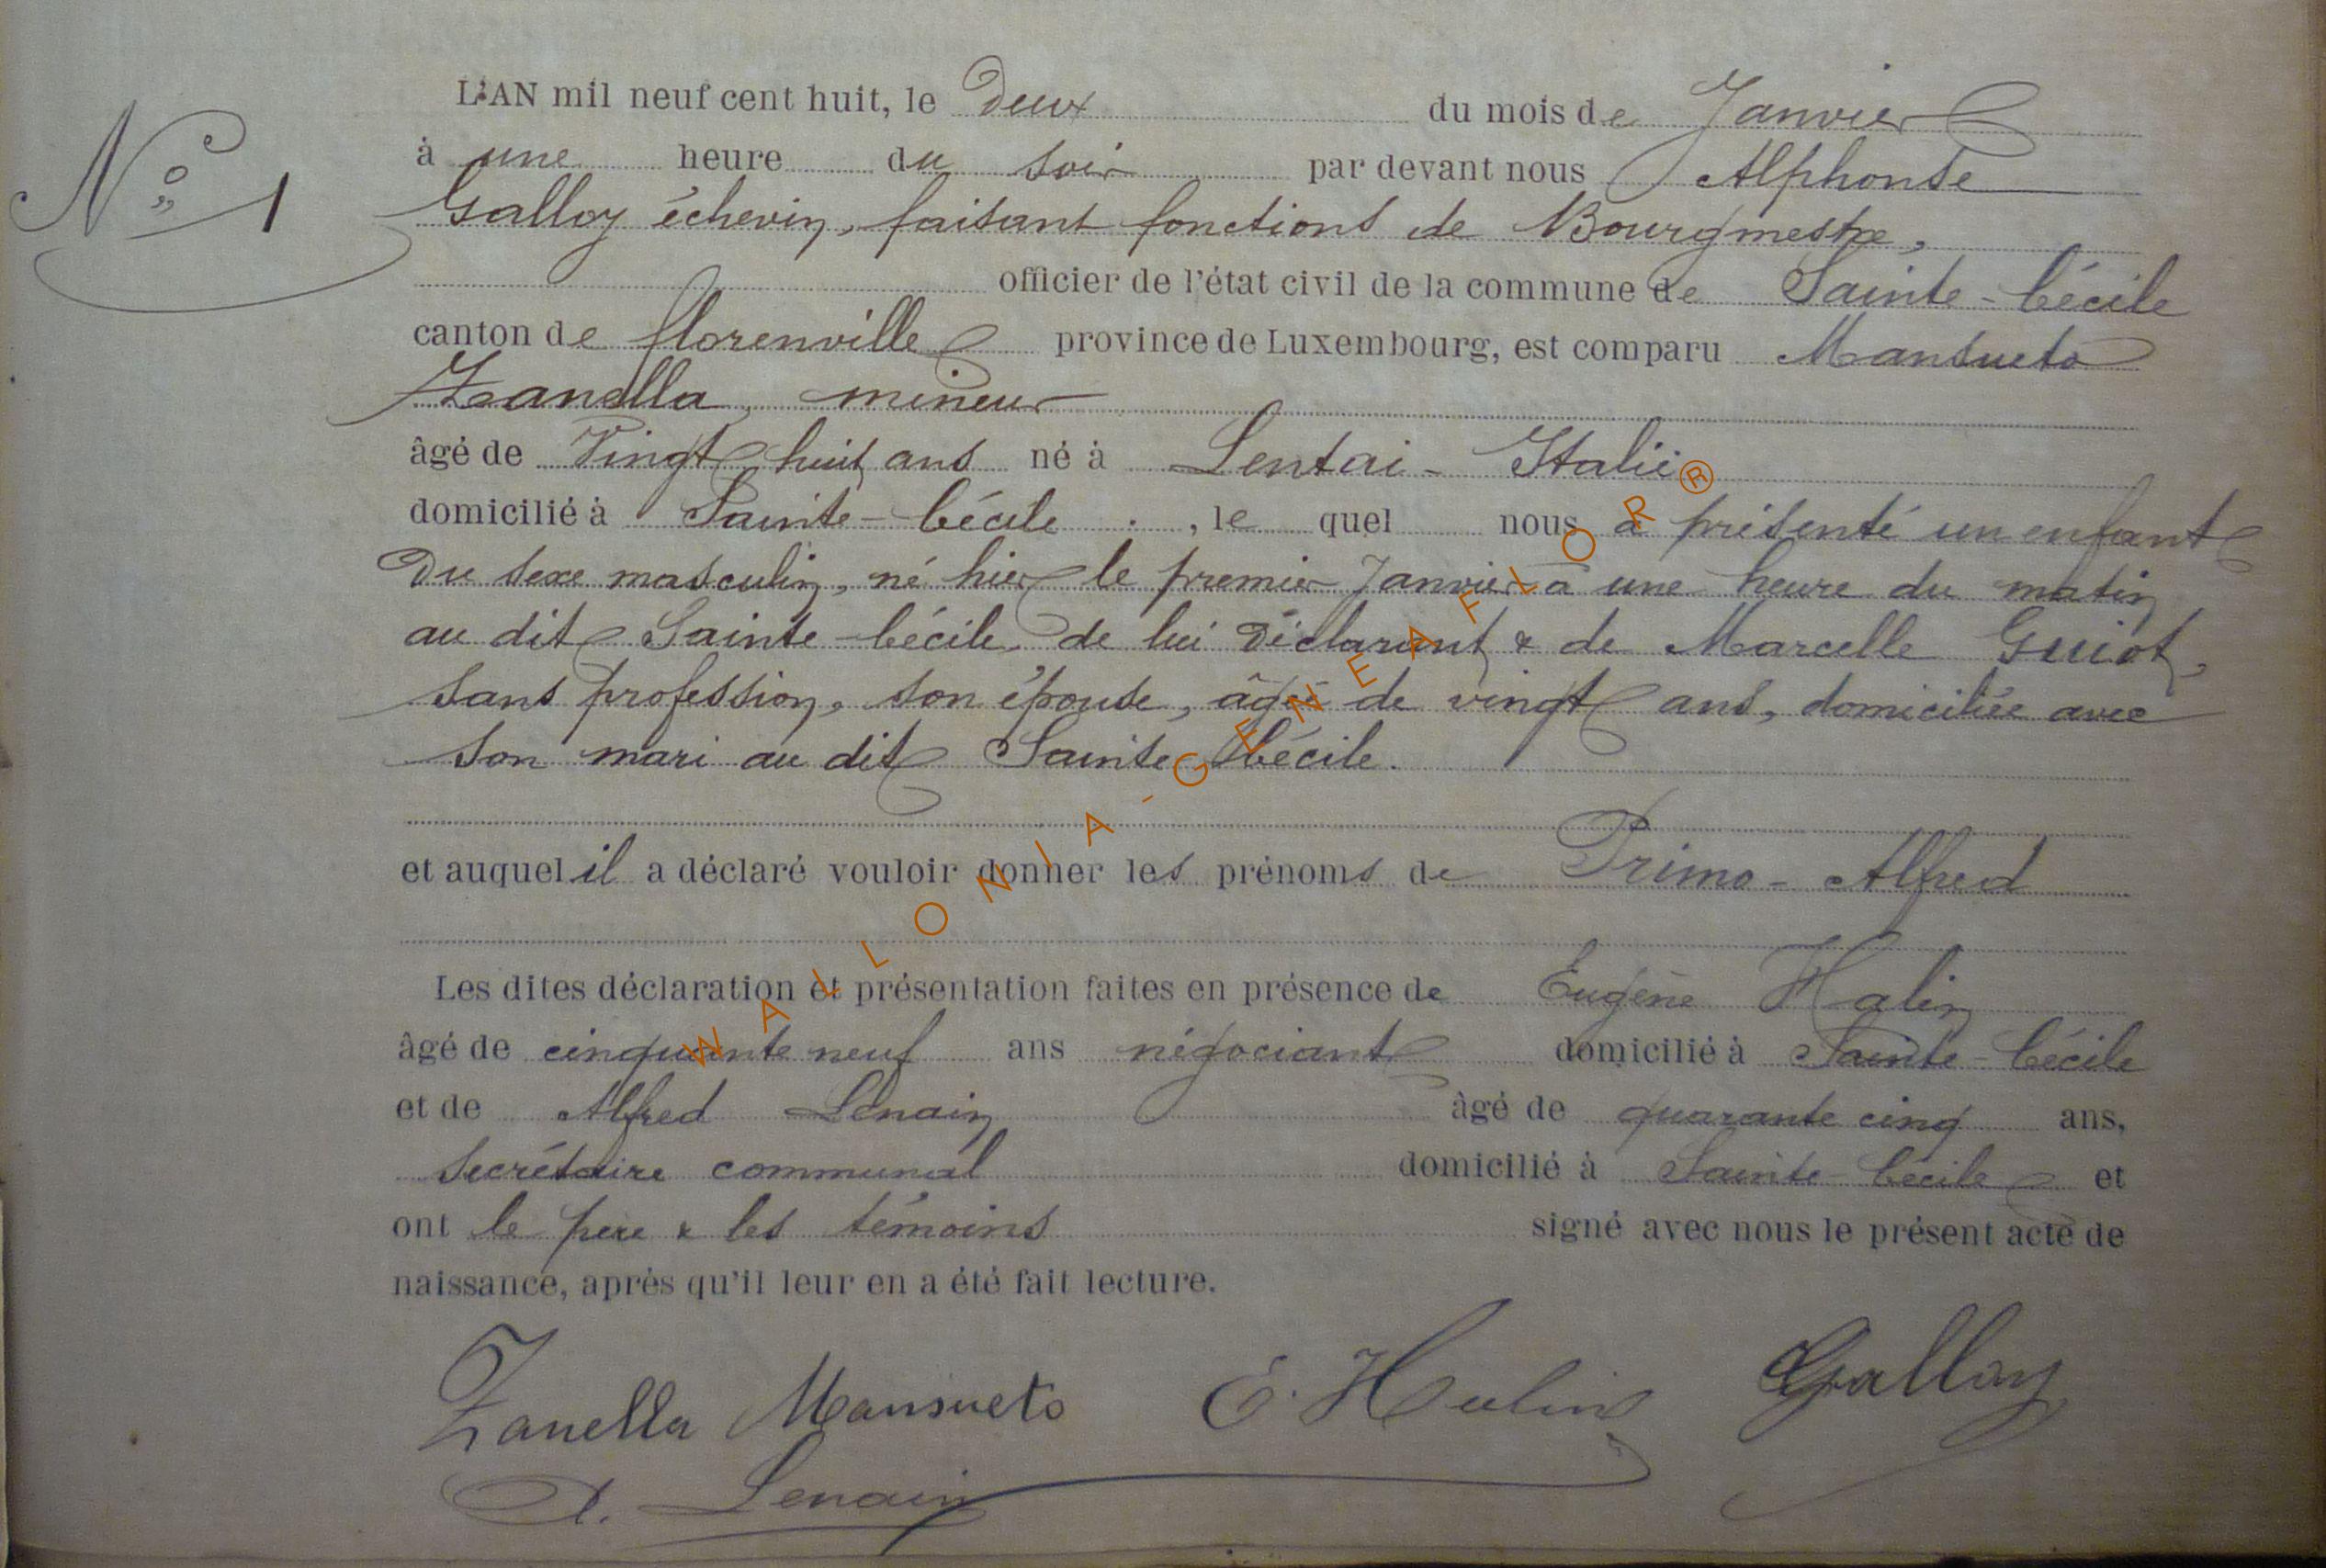 L'AN mil neuf cent huit, le Deux du mois de Janvier
N° 1
à une heure du soir par devant nous Alphonse
Galloy échevin, faisant fonctions de Bourgmestre,
officier de l'état civil de la commune de Sainte-Cécile
canton de florenville province de Luxembourg, est comparu Mansueto
Zanella, mineur
âgé de Vingt huit ans né à Lentai - Italie
domicilié à Sainte-Cécile, le quel nous a présenté un enfant
Du sexe masculin, né hier le premier Janvier à une heure du matin
au dit Sainte-Cécile, de lui Déclarant & de Marcelle Guiot,
sans profession, son épouse, âgée de vingt ans, domiciliée avec
son mari au dit Sainte Cécile.
et auquel il a déclaré vouloir donner les prénoms de Primo-Alfred
Les dites déclaration et présentation faites en présence de Eugène Halin
âgé de cinquante neuf ans négociant domicilié à Sainte-Cécile
et de Alfred Lenain âgé de quarante cinq ans,
secrétaire communal domicilié à Sainte Cécile et
ont le père & les témoins signé avec nous le présent acte de
naissance, après qu'il leur en a été fait lecture.
Zanella Mansueto E. Halin Galloy
A. Lenain
WALLONIA-GENEAFLOR®